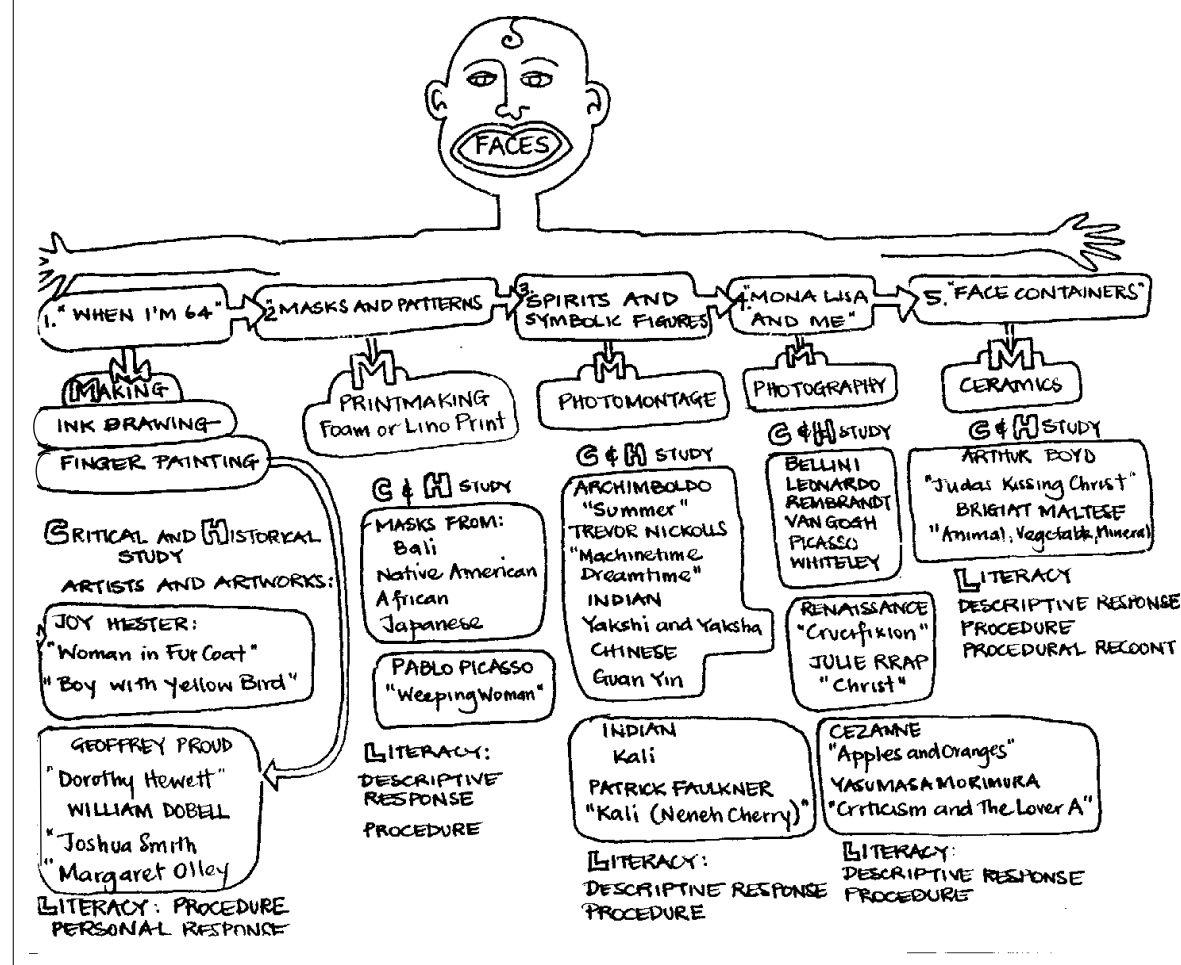 FACES
1. "WHEN I'M 64"
MAKING
INK DRAWING
FINGER PAINTING
CRITICAL AND HISTORICAL
STUDY
ARTISTS AND ARTWORKS:
JOY HESTER:
"Woman in Fur Coat"
"Boy with Yellow Bird"
GEOFFREY PROUD
"Dorothy Hewett"
WILLIAM DOBELL
"Joshua Smith
"Margaret Olley
LITERACY: PROCEDURE
PERSONAL RESPONSE
2. "MASKS AND PATTERNS
M
PRINTMAKING
Foam or Lino Print
C & H STUDY
MASKS FROM:
Bali
Native American
African
Japanese
PABLO PICASSO
"Weeping Woman"
LITERACY:
DESCRIPTIVE
RESPONSE
PROCEDURE
3. SPIRITS AND
SYMBOLIC FIGURES
M
PHOTOMONTAGE
C & H STUDY
ARCHIMBOLDO
"Summer"
TREVOR NICKOLLS
"Machinetime
Dreamtime"
INDIAN
Yakshi and Yaksha
CHINESE
Guan Yin
INDIAN
Kali
PATRICK FAULKNER
"Kali (Neneh Cherry)"
LITERACY:
DESCRIPTIVE RESPONSE
PROCEDURE
4. "MONA LISA
AND ME"
M
PHOTOGRAPHY
C & H STUDY
BELLINI
LEONARDO
REMBRANDT
VAN GOGH
PICASSO
WHITELEY
RENAISSANCE
"Crucifixion"
JULIE RRAP
"Christ"
CEZANNE
"Apples and Oranges"
YASUMASA MORIMURA
"Criticism and The Lover A"
LITERACY:
DESCRIPTIVE RESPONSE
PROCEDURE
5. "FACE CONTAINERS"
M
CERAMICS
C & H STUDY
ARTHUR BOYD
"Judas Kissing Christ"
BRIGIAT MALTESE
"Animal, Vegetable, Mineral
LITERACY
DESCRIPTIVE RESPONSE
PROCEDURE
PROCEDURAL RECOUNT